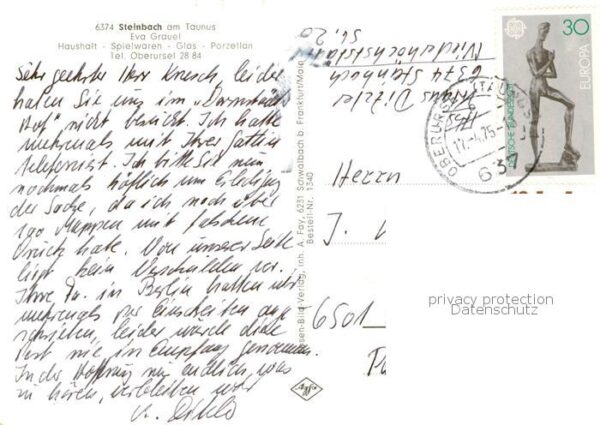 6374 Steinbach am Taunus
Eva Grauel
Haushalt - Spielwaren - Glas - Porzellan
Tel. Oberursel 28 84
Sehr geehrter Herr leider
haben Sie uns im „Darmstädter
Hof" nicht besucht. Ich hatte
mehrmals mit Ihrer Gattin
telefoniert. Ich bitte Sie nun
nochmals höflich um Erledigung
der Sache, da ich noch über
100 Mappen mit
Druck habe. Von unserer Seite
liegt kein Verschulden vor.
Ihre Fa. in Berlin hatten wir
mehrmals per Einschreiben
leider wurde diese
Post nie in Empfang genommen
In der Hoffnung nun endlich, was
zu hören, verbleiben wir
Klaus
6374 Steinbach
St. 20
Herrn
J.
6501
-Bild-Verlag, Inh. A. Fay, 6231 Schwalbach b. Frankfurt/Main
Bestell-Nr. 1340
Agfa
30
EUROPA
DEUTSCHE BUNDESPOST
OBERURSEL (TAUNUS)
17.-4.75
637
privacy protection
Datenschutz